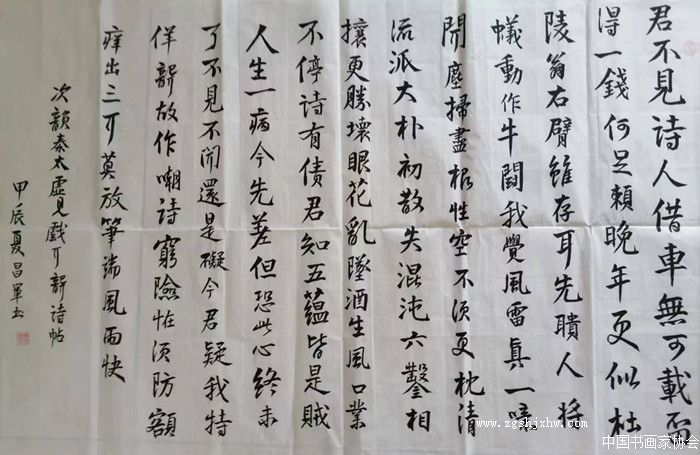 君不見詩人借車無可載留
得一錢何足賴晚年更似杜
陵翁右臂雖存耳先聵人將
蟻動作牛鬭我覺風雷真一噫
聞塵掃盡根性空不須更枕清
流派大朴初散失混沌六鑿相
攘更勝壞眼花亂墜酒生風口業
不停詩有債君知五蘊皆是賊
人生一病今先差但恐此心終未
了不見不聞還是礙今君疑我特
佯聾故作嘲詩窮險怪須防額
痒出三耳莫放筆端風雨快
次韻秦太虛見戲耳聾詩帖
甲辰夏昌軍书
www.zgshjxhw.com
中国书画家协会